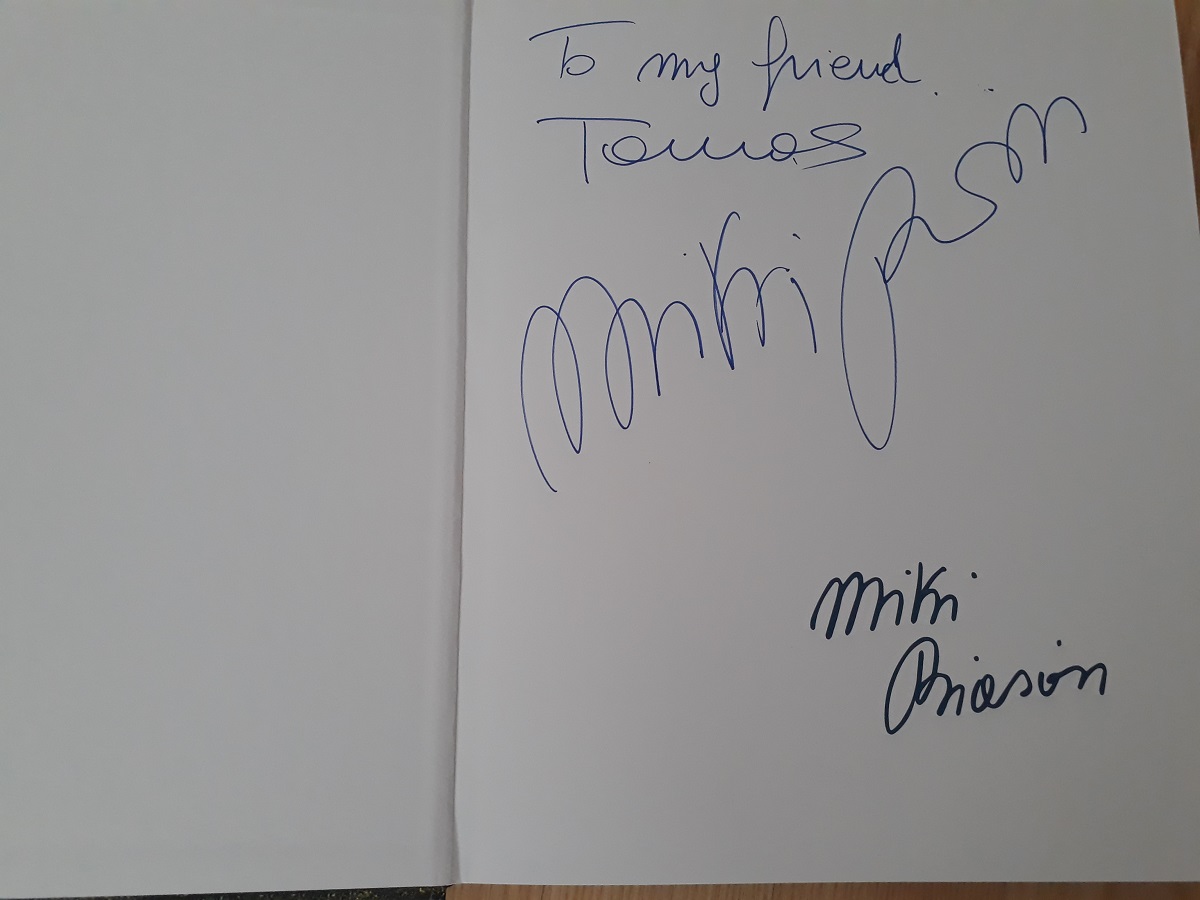 To my friend
Tomas
Miki Biasion
Miki
Biasion